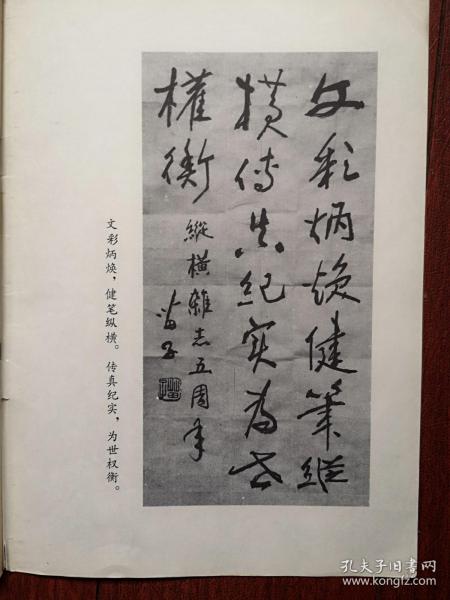 文彩炳焕健筆縱
横傳真紀实为世
權衡
縱橫雜志五周年
文彩炳焕，健笔纵横。传真纪实，为世权衡。
孔夫子旧书网
www.kongfz.com